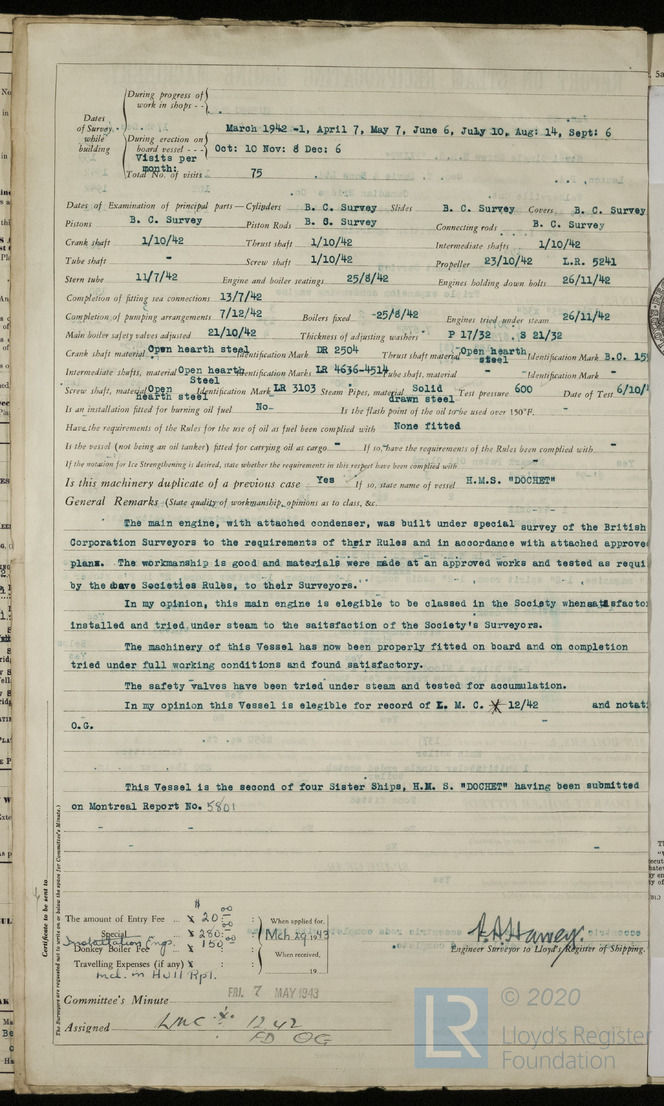 During progress of
work in shops - -
Dates
of Survey
while
building
During erection on
board vessel - - -
March 1942 -1, April 7, May 7, June 6, July 10, Aug: 14, Sept: 6
Oct: 10 Nov: 8 Dec: 6
Visits per
month:
Total No. of visits 75
Dates of Examination of principal parts—Cylinders B. C. Survey Slides B. C. Survey Covers B. C. Survey
Pistons B. C. Survey Piston Rods B. C. Survey Connecting rods B. C. Survey
Crank shaft 1/10/42 Thrust shaft 1/10/42 Intermediate shafts 1/10/42
Tube shaft - Screw shaft 1/10/42 Propeller 23/10/42 L.R. 5241
Stern tube 11/7/42 Engine and boiler seatings 25/8/42 Engines holding down bolts 26/11/42
Completion of fitting sea connections 13/7/42
Completion of pumping arrangements 7/12/42 Boilers fixed -25/8/42 Engines tried under steam 26/11/42
Main boiler safety valves adjusted 21/10/42 Thickness of adjusting washers P 17/32 . S 21/32
Crank shaft material Open hearth steel Identification Mark DR 2504 Thrust shaft material Open hearth steel Identification Mark B.C. 155
Intermediate shafts, material Open hearth Steel Identification Marks LR 4636-4514 Tube shaft, material - Identification Mark -
Screw shaft, material Open hearth steel Identification Mark LR 3103 Steam Pipes, material Solid drawn steel Test pressure 600 Date of Test 6/10/
Is an installation fitted for burning oil fuel No- Is the flash point of the oil to be used over 150°F. -
Have the requirements of the Rules for the use of oil as fuel been complied with None fitted
Is the vessel (not being an oil tanker) fitted for carrying oil as cargo - If so, have the requirements of the Rules been complied with -
If the notation for Ice Strengthening is desired, state whether the requirements in this respect have been complied with -
Is this machinery duplicate of a previous case Yes If so, state name of vessel H.M.S. "DOCHET"
General Remarks (State quality of workmanship, opinions as to class, &c.
The main engine, with attached condenser, was built under special survey of the British
Corporation Surveyors to the requirements of their Rules and in accordance with attached approve
plans. The workmanship is good and materials were made at an approved works and tested as requi
by the above Societies Rules, to their Surveyors.
In my opinion, this main engine is elegible to be classed in the Society when satisfacto
installed and tried under steam to the saitsfaction of the Society's Surveyors.
The machinery of this Vessel has now been properly fitted on board and on completion
tried under full working conditions and found satisfactory.
The safety valves have been tried under steam and tested for accumulation.
In my opinion this Vessel is elegible for record of L. M. C. 12/42 and notati
O.G.
This Vessel is the second of four Sister Ships, H.M. S. "DOCHET" having been submitted
on Montreal Report No. 5801
Certificate to be sent to
The Surveyors are requested not to write on or below the space for Committee's Minute.
$
The amount of Entry Fee ... 20:00 : When applied for,
Special ... 280:00 : Mch 29 1943
Installation Engs.
Donkey Boiler Fee ... 150:00 : When received,
Travelling Expenses (if any) : 19
incl. in Hull Rpt.
A.A. Harvey.
Engineer Surveyor to Lloyd's Register of Shipping.
Committee's Minute FRI. 7 MAY 1943
Assigned LMC 12 42
FD OG
LR
© 2020
Lloyd's Register
Foundation